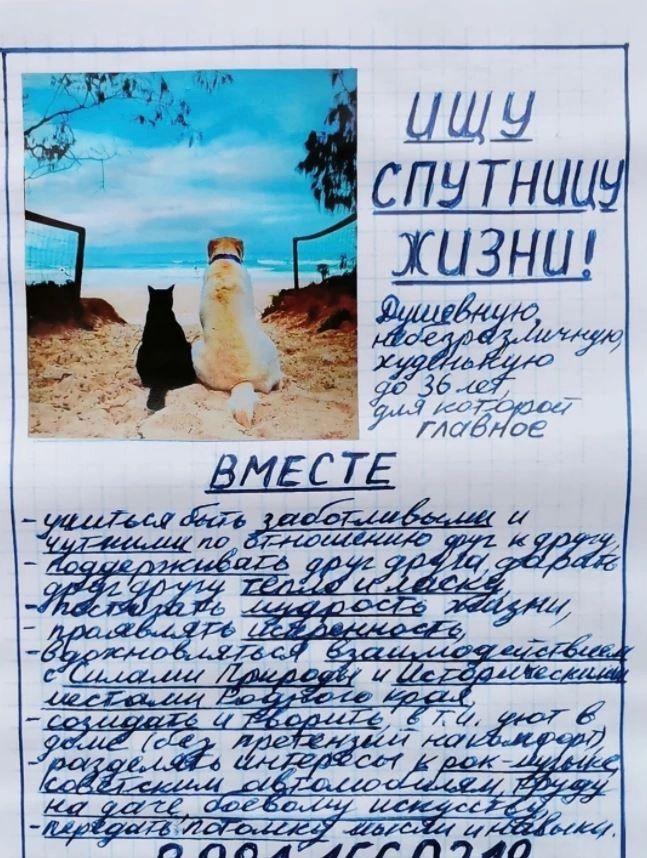 ИЩУ
СПУТНИЦУ
ЖИЗНИ!
Душевную,
небезразличную,
худенькую
до 36 лет,
для которой
главное
ВМЕСТЕ
- учиться быть заботливыми и
чуткими по отношению друг к другу,
- поддерживать друг друга, дарить
друг другу тепло и ласку,
- постигать мудрость жизни,
- проявлять искренность,
- вдохновляться взаимодействием
с Силами Природы и Историческими
местами Родного края,
- созидать и творить, в т.ч. уют в
доме (без претензий на комфорт),
- разделять интересы к рок-музыке,
советским автомобилям, труду
на даче, боевому искусству,
- передать потомку мысли и навыки.